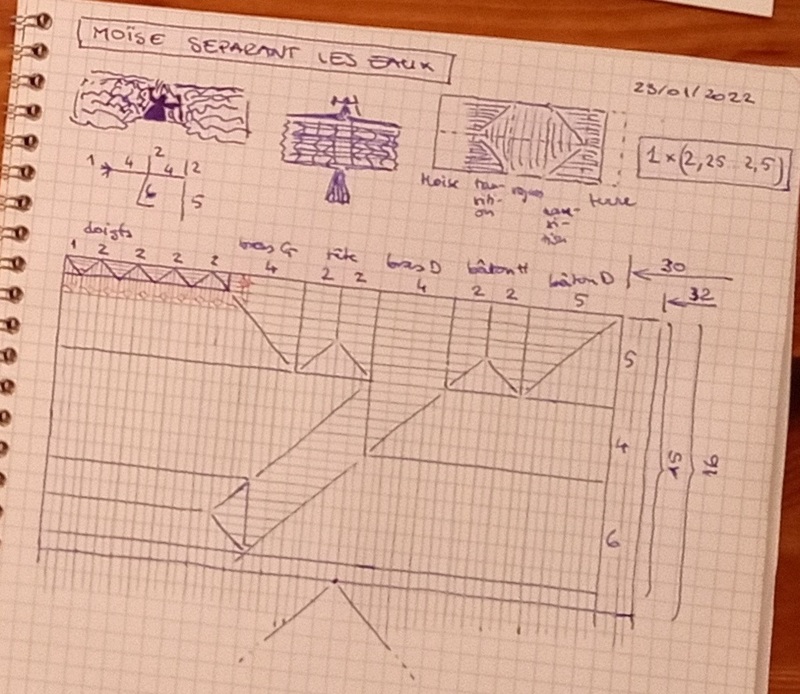 MOÏSE SEPARANT LES EAUX
23/01/2022
1 4 2 4 2
6 5
1 × (2,25 2,5)
Moïse tran- région terre
siti-
on
doigts bras G tête bras D bâton H bâton D 30
1 2 2 2 2 4 2 2 4 2 2 5 32
5
4
15 16
6